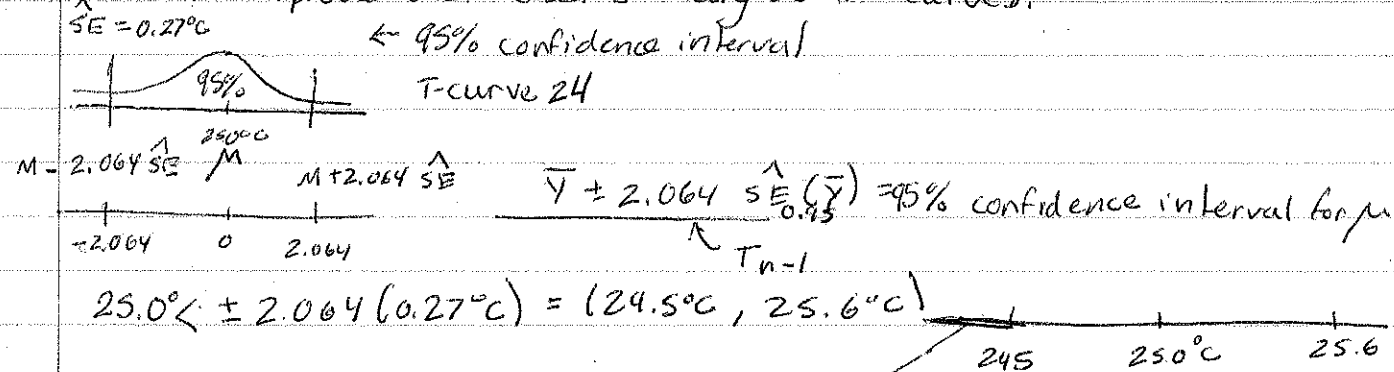 curves.
ŜE = 0.27°C
← 95% confidence interval
95%
T-curve 24
25.0°C
M - 2.064 ŜE
M
M + 2.064 ŜE
Ȳ ± 2.064 ŜE(Ȳ) = 95% confidence interval for μ
-2.064 0 2.064
T n-1
25.0°C ± 2.064 (0.27°C) = (24.5°C, 25.6°C)
245 25.0°C 25.6